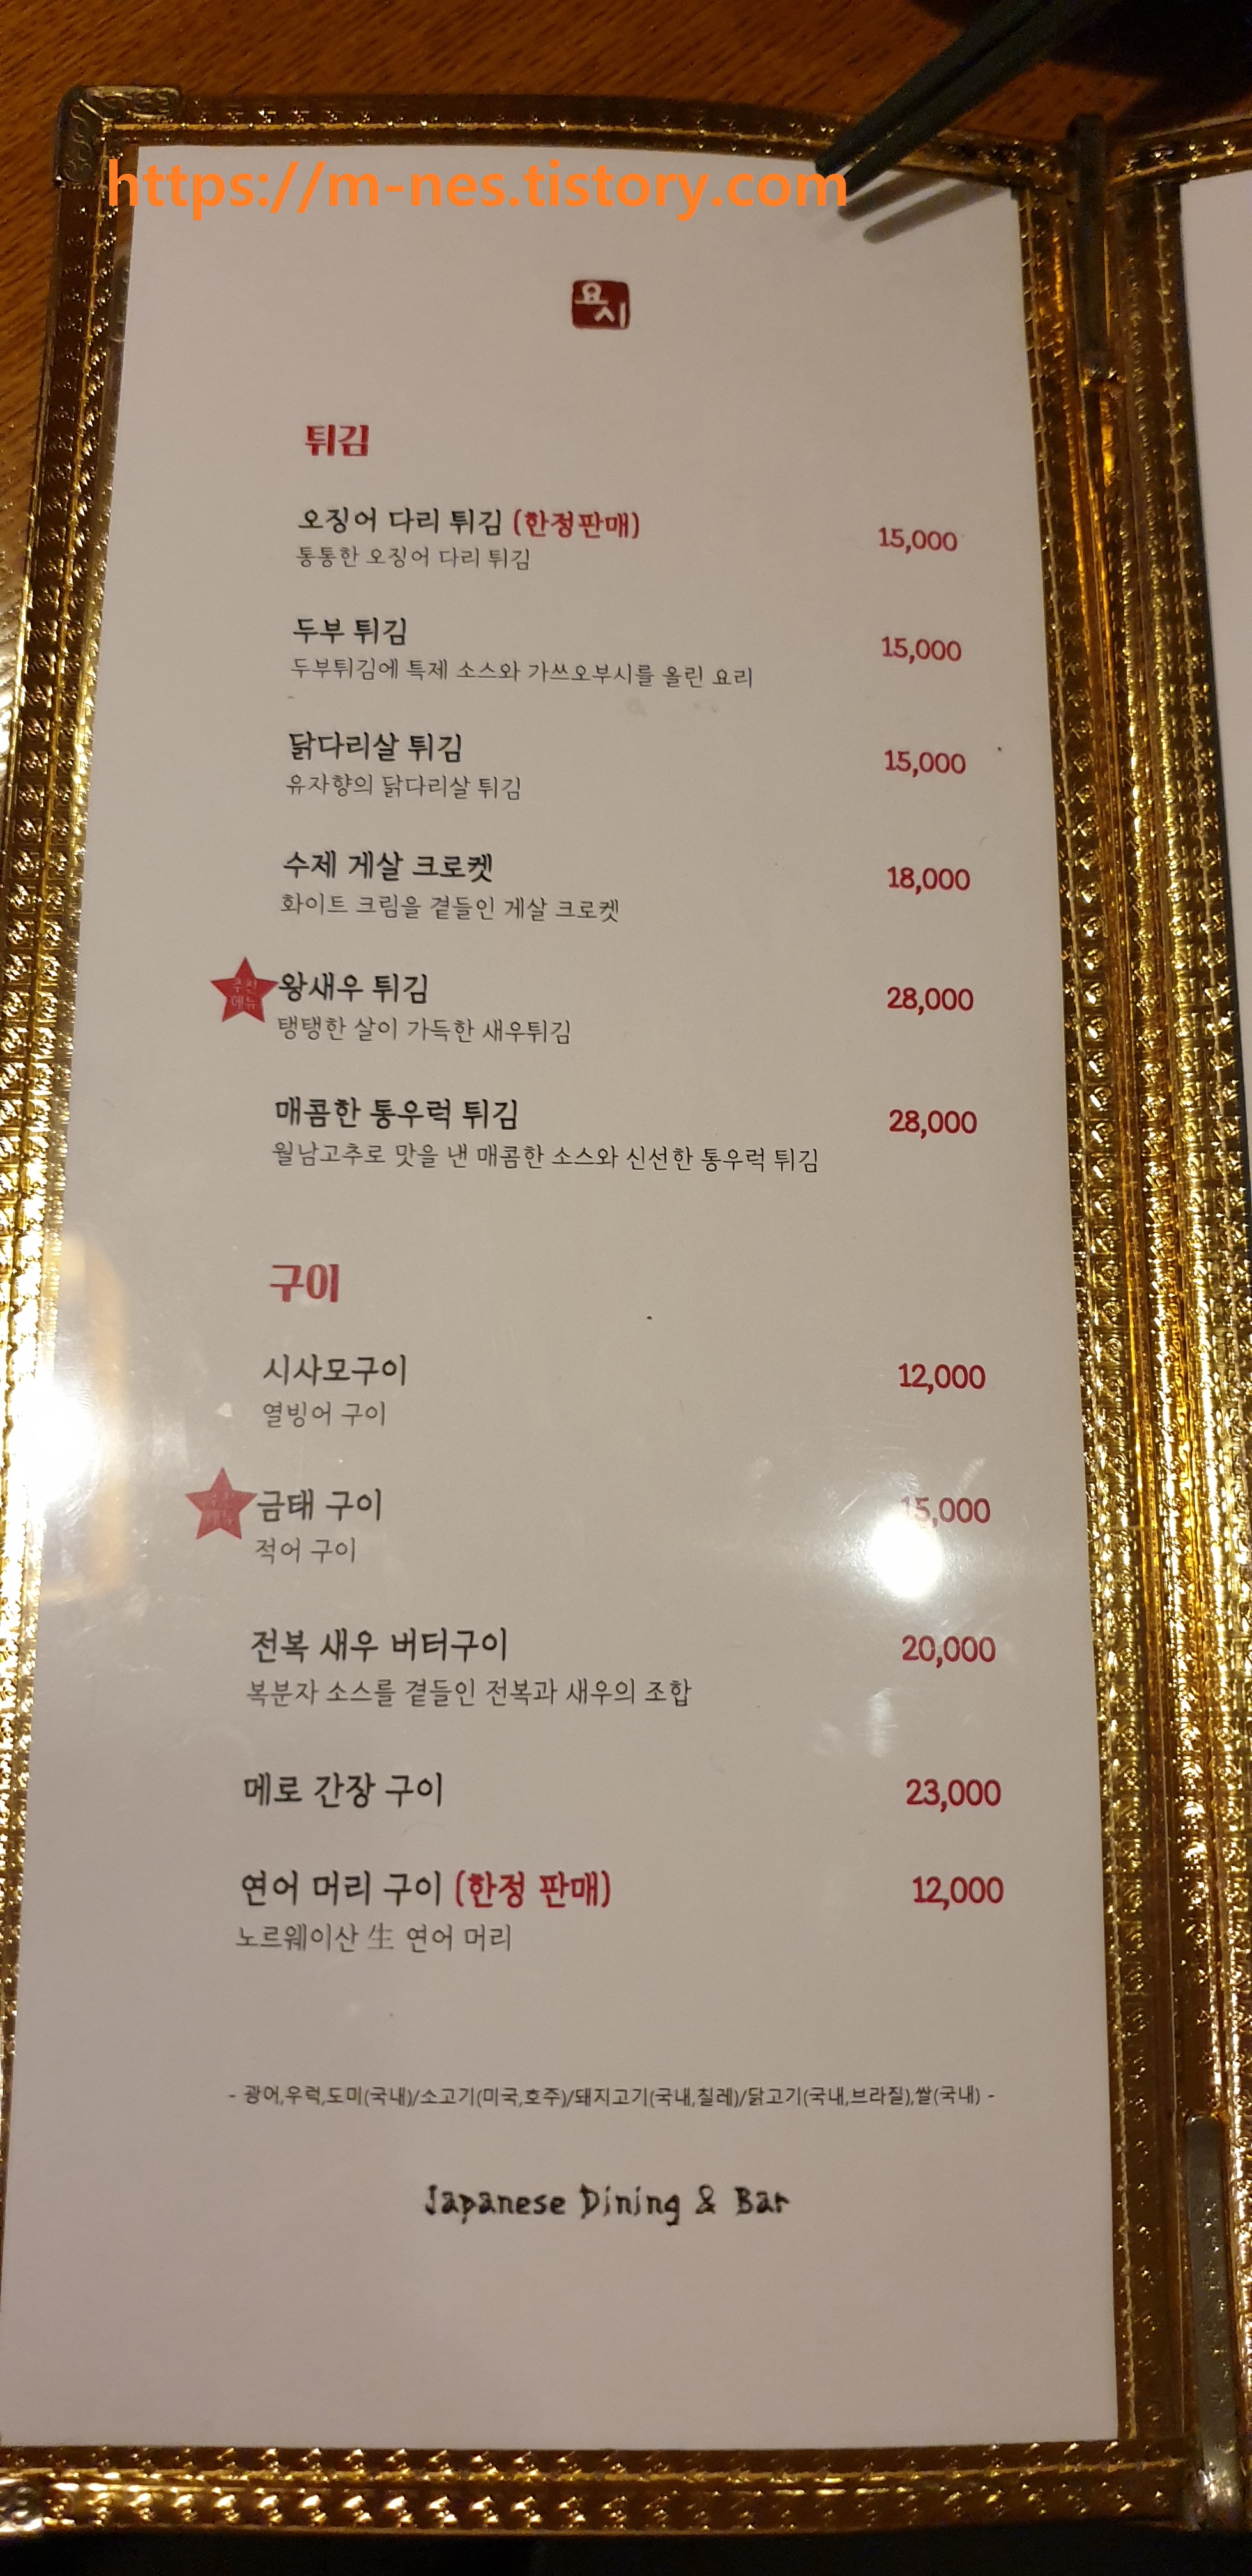 https://m-nes.tistory.com
요시
튀김
오징어 다리 튀김 (한정판매) 15,000
통통한 오징어 다리 튀김
두부 튀김 15,000
두부튀김에 특제 소스와 가쓰오부시를 올린 요리
닭다리살 튀김 15,000
유자향의 닭다리살 튀김
수제 게살 크로켓 18,000
화이트 크림을 곁들인 게살 크로켓
추천
메뉴
왕새우 튀김 28,000
탱탱한 살이 가득한 새우튀김
매콤한 통우럭 튀김 28,000
월남고추로 맛을 낸 매콤한 소스와 신선한 통우럭 튀김
구이
시사모구이 12,000
열빙어 구이
추천
메뉴
금태 구이 15,000
적어 구이
전복 새우 버터구이 20,000
복분자 소스를 곁들인 전복과 새우의 조합
메로 간장 구이 23,000
연어 머리 구이 (한정 판매) 12,000
노르웨이산 生 연어 머리
- 광어,우럭,도미(국내)/소고기(미국,호주)/돼지고기(국내,칠레)/닭고기(국내,브라질),쌀(국내) -
Japanese Dining & Bar